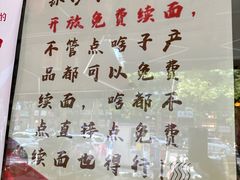 开放免费续面，
不管点啥子产
品都可以免费
续面，啥都不
点直接点免费
续面也得行！
的